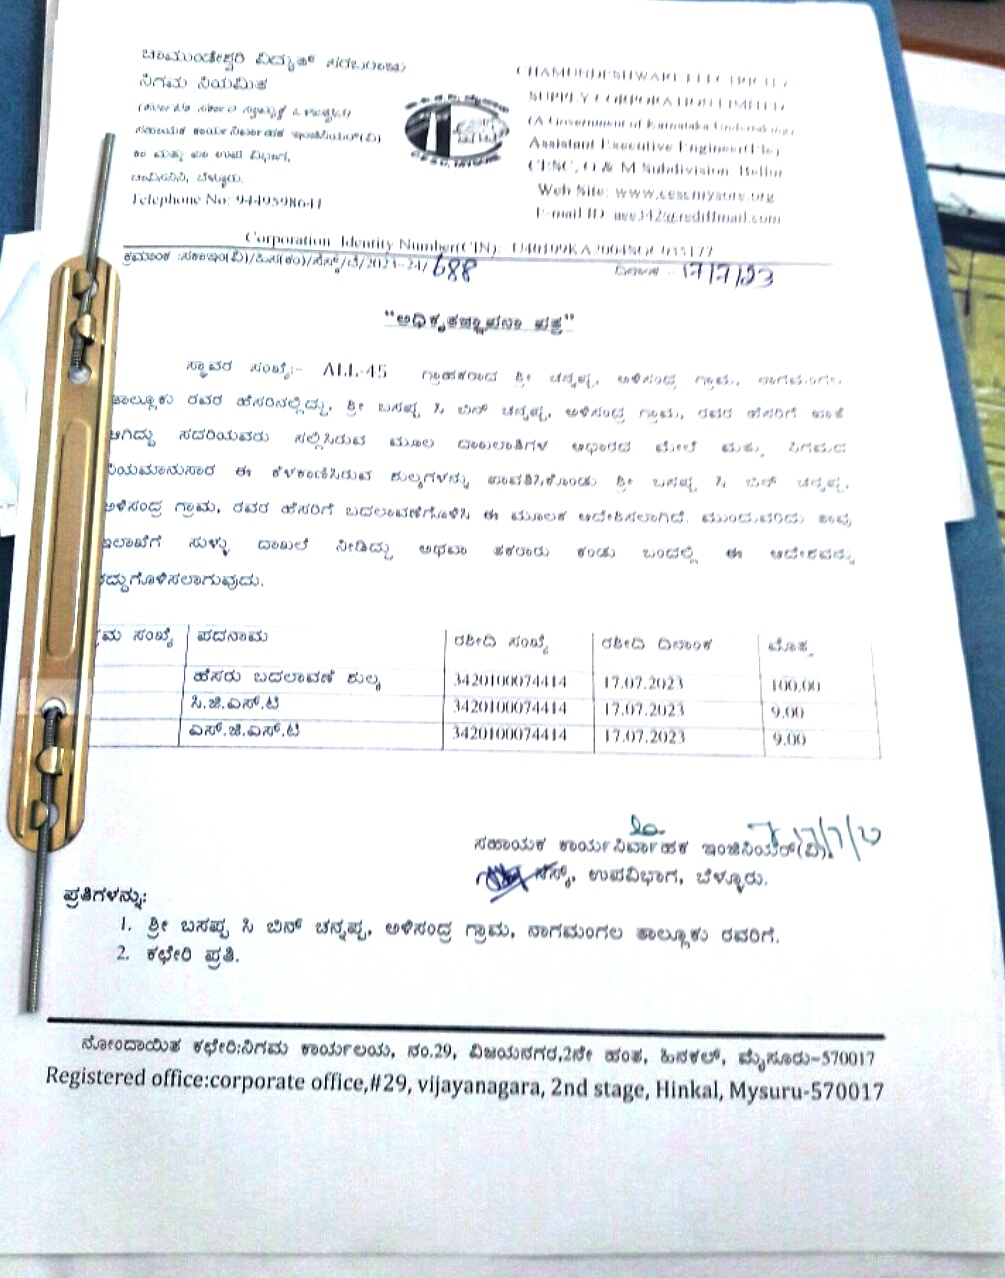 ಚಾಮುಂಡೇಶ್ವರಿ ವಿದ್ಯುತ್ ಸರಬರಾಜು
ನಿಗಮ ನಿಯಮಿತ
(ಕರ್ನಾಟಕ ಸರ್ಕಾರದ
ಸಹಾಯಕ ಕಾರ್ಯನಿರ್ವಾಹಕ ಇಂಜಿನಿಯರ್(ವಿ)
ಕಾ ಮತ್ತು ಪಾ ಉಪ ವಿಭಾಗ,
ಚಾವಿಸನಿನಿ, ಬೆಳ್ಳೂರು.
Telephone No: 9449598641
CHAMUNDESHWARI ELECTRICITY
SUPPLY CORPORATION LIMITED
(A Government of Karnataka Undertaking)
Assistant Executive Engineer(Ele)
CESC, O & M Subdivision Bellur
Web Site: www.cescmysore.org
E-mail ID aee342@rediffmail.com
Corporation Identity Number(CIN):- U40109KA2004SGC035177
ಕ್ರಮಾಂಕ :ಸಕಾಇಂ(ವಿ)/ಹಿಸ(ಕಂ)/ಸೆಸ್ಕ್/ಬೆ/2023-24/688 ದಿನಾಂಕ 17/7/23
"ಅಧಿಕೃತಜ್ಞಾಪನಾ ಪತ್ರ"
ಸ್ಥಾವರ ಸಂಖ್ಯೆ:- ALL-45 ಗ್ರಾಹಕರಾದ ಶ್ರೀ ಚನ್ನಪ್ಪ, ಅಳಿಸಂದ್ರ ಗ್ರಾಮ, ನಾಗಮಂಗಲ
ತಾಲ್ಲೂಕು ರವರ ಹೆಸರಿನಲ್ಲಿದ್ದು, ಶ್ರೀ ಬಸಪ್ಪ ಸಿ ಬಿನ್ ಚನ್ನಪ್ಪ, ಅಳಿಸಂದ್ರ ಗ್ರಾಮ, ರವರ ಹೆಸರಿಗೆ ಖಾತೆ
ಆಗಿದ್ದು ಸದರಿಯವರು ಸಲ್ಲಿಸಿರುವ ಮೂಲ ದಾಖಲಾತಿಗಳ ಆಧಾರದ ಮೇಲೆ ಮತ್ತು ನಿಗಮದ
ನಿಯಮಾನುಸಾರ ಈ ಕೆಳಕಾಣಿಸಿರುವ ಶುಲ್ಕಗಳನ್ನು ಪಾವತಿಸಿಕೊಂಡು ಶ್ರೀ ಬಸಪ್ಪ ಸಿ ಬಿನ್ ಚನ್ನಪ್ಪ,
ಅಳಿಸಂದ್ರ ಗ್ರಾಮ, ರವರ ಹೆಸರಿಗೆ ಬದಲಾವಣೆಗೊಳಿಸಿ ಈ ಮೂಲಕ ಆದೇಶಿಸಲಾಗಿದೆ. ಮುಂದುವರಿದು ತಾವು
ಇಲಾಖೆಗೆ ಸುಳ್ಳು ದಾಖಲೆ ನೀಡಿದ್ದು ಅಥವಾ ತಕರಾರು ಕಂಡು ಬಂದಲ್ಲಿ ಈ ಆದೇಶವನ್ನು
ರದ್ದುಗೊಳಿಸಲಾಗುವುದು.
ಕ್ರಮ ಸಂಖ್ಯೆ ಪದನಾಮ ರಶೀದಿ ಸಂಖ್ಯೆ ರಶೀದಿ ದಿನಾಂಕ ಮೊತ್ತ
ಹೆಸರು ಬದಲಾವಣೆ ಶುಲ್ಕ 3420100074414 17.07.2023 100.00
ಸಿ.ಜಿ.ಎಸ್.ಟಿ 3420100074414 17.07.2023 9.00
ಎಸ್.ಜಿ.ಎಸ್.ಟಿ 3420100074414 17.07.2023 9.00
ಸಹಾಯಕ ಕಾರ್ಯನಿರ್ವಾಹಕ ಇಂಜಿನಿಯರ್(ವಿ)
ಸೆಸ್ಕ್, ಉಪವಿಭಾಗ, ಬೆಳ್ಳೂರು.
ಪ್ರತಿಗಳನ್ನು:
1. ಶ್ರೀ ಬಸಪ್ಪ ಸಿ ಬಿನ್ ಚನ್ನಪ್ಪ, ಅಳಿಸಂದ್ರ ಗ್ರಾಮ, ನಾಗಮಂಗಲ ತಾಲ್ಲೂಕು ರವರಿಗೆ.
2. ಕಛೇರಿ ಪ್ರತಿ.
ನೋಂದಾಯಿತ ಕಛೇರಿ:ನಿಗಮ ಕಾರ್ಯಾಲಯ, ನಂ.29, ವಿಜಯನಗರ,2ನೇ ಹಂತ, ಹಿನಕಲ್, ಮೈಸೂರು-570017
Registered office:corporate office,#29, vijayanagara, 2nd stage, Hinkal, Mysuru-570017